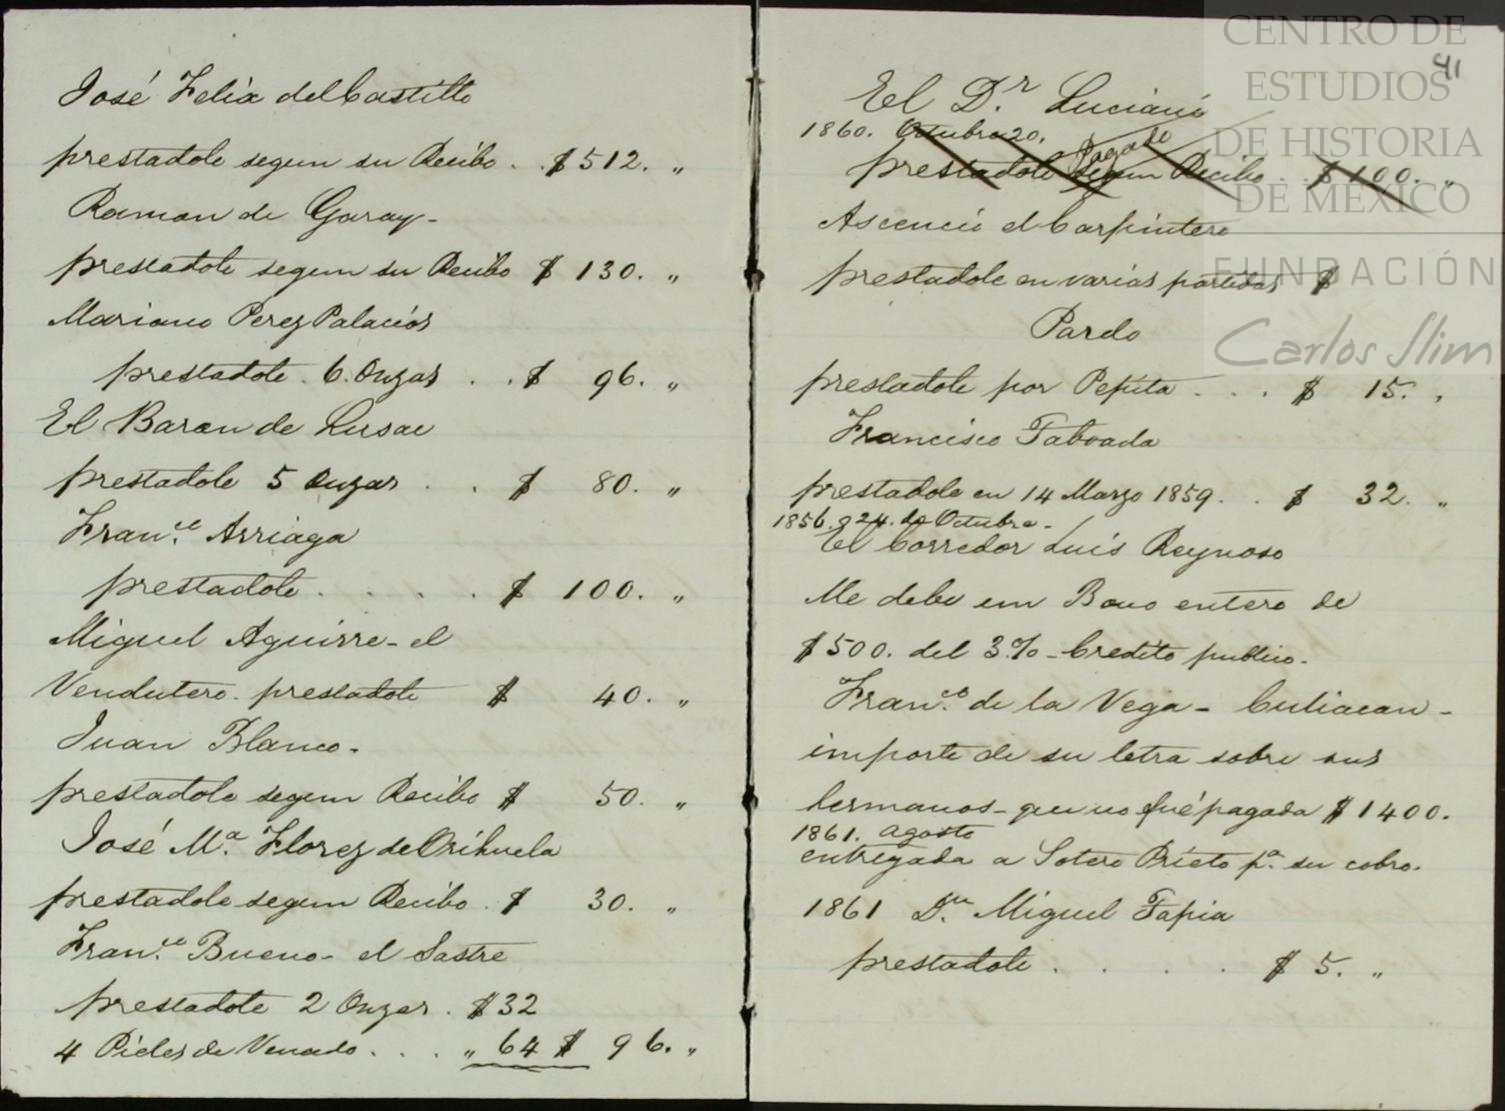 José Felix del Castillo
prestadole segun su Recibo . . $ 512. „
Ramon de Garay -
prestadole segun su Recibo $ 130. „
Mariano Perez Palacios
prestadole . 6. Onzas . . $ 96. „
El Baron de
prestadole 5 Onzas . . $ 80. „
Fran.co Arriaga
prestadole . . . . $ 100. „
Miguel Aguirre - el
Vendutero. prestadole $ 40. „
Juan Blanco -
prestadole segun Recibo $ 50. „
José M.a Florez de Orihuela
prestadole segun Recibo . $ 30. „
Fran.co Bueno - el Sastre
prestadole 2 Onzas . $ 32
4 Pieles de Venado . . . „ 64 $ 96. „
41
El D.r Luciano
1860. Octubre 20.
Pagado
prestadole segun Recibo . . $ 100. „
Ascencio el Carpintero
prestadole en varias partidas $
Pardo
prestadole por Pepita . . . $ 15. „
Francisco Taboada
prestadole en 14 Marzo 1859 . . $ 32. „
1856. 24. de Octubre -
El Corredor Luis Reynoso
Me debe un Bono entero de
$ 500. del 3.% - Credito publico -
Fran.co de la Vega - Culiacan -
importe de su letra sobre sus
hermanos - que no fué pagada $ 1400.
1861. agosto
entregada a Sotero Prieto p.a su cobro.
1861 D.n Miguel Tapia
prestadole . . . . $ 5. „
CENTRO DE
ESTUDIOS
DE HISTORIA
DE MÉXICO
FUNDACIÓN
Carlos Slim